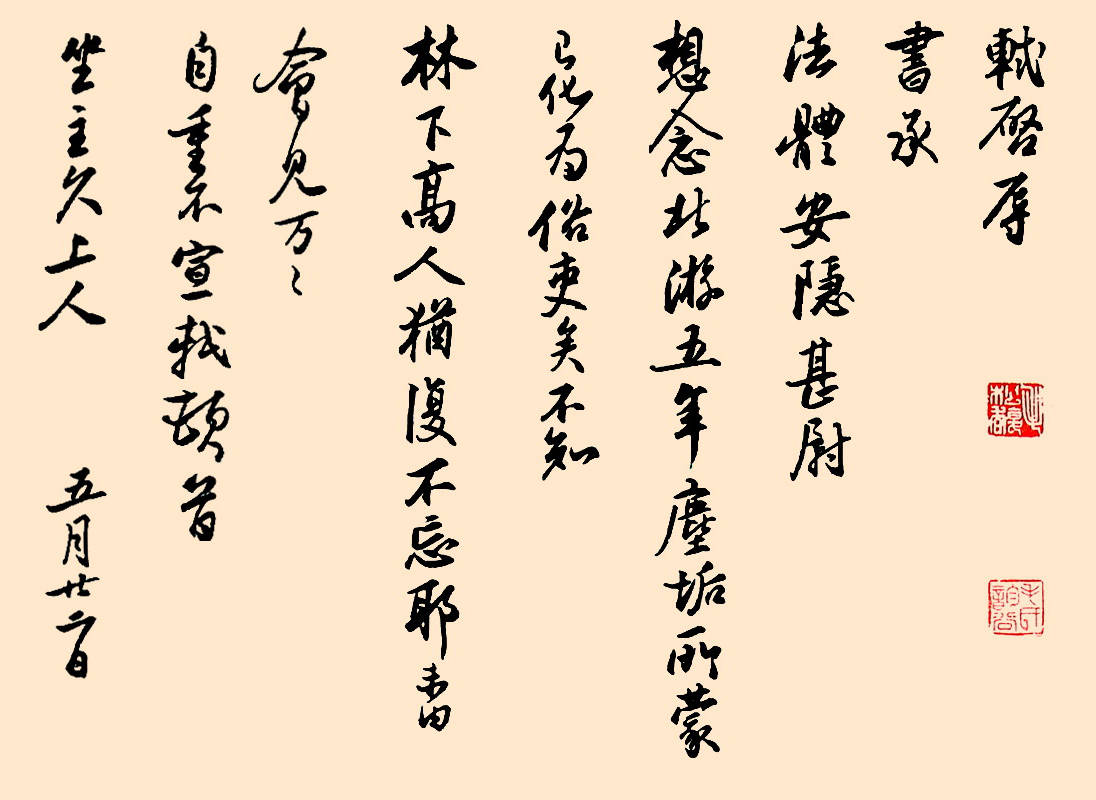 軾啓辱
書承
法體安隱甚尉
想念北游五年塵垢所蒙
已化為俗吏矣不知
林下高人猶復不忘耶未由
會見万〻
自重不宣軾頓首
坐主久上人 五月廿二日